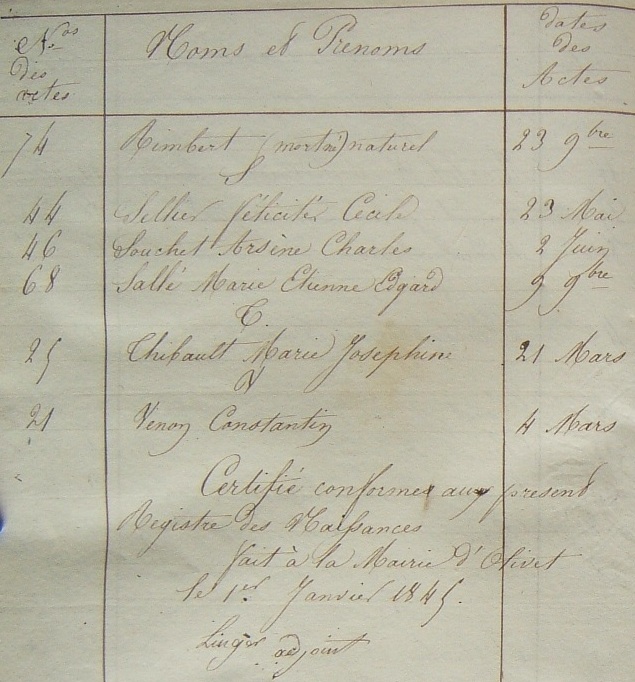 Nos des actes | Noms et Prenoms | dates des Actes
74 Rimbert (mort né) naturel 23 9bre
S
44 Sellier Félicité Cécile 23 Mai
46 Souchet Arsène Charles 2 Juin
68 Sallé Marie Etienne Edgard 9 9bre
T.
25 Thibault Marie Josephine 21 Mars
V
21 Venon Constantin 4 Mars
Certifié conforme aux present
Registre des Naissances
fait à la Mairie d'Olivet
le 1er Janvier 1845.
Linger adjoint